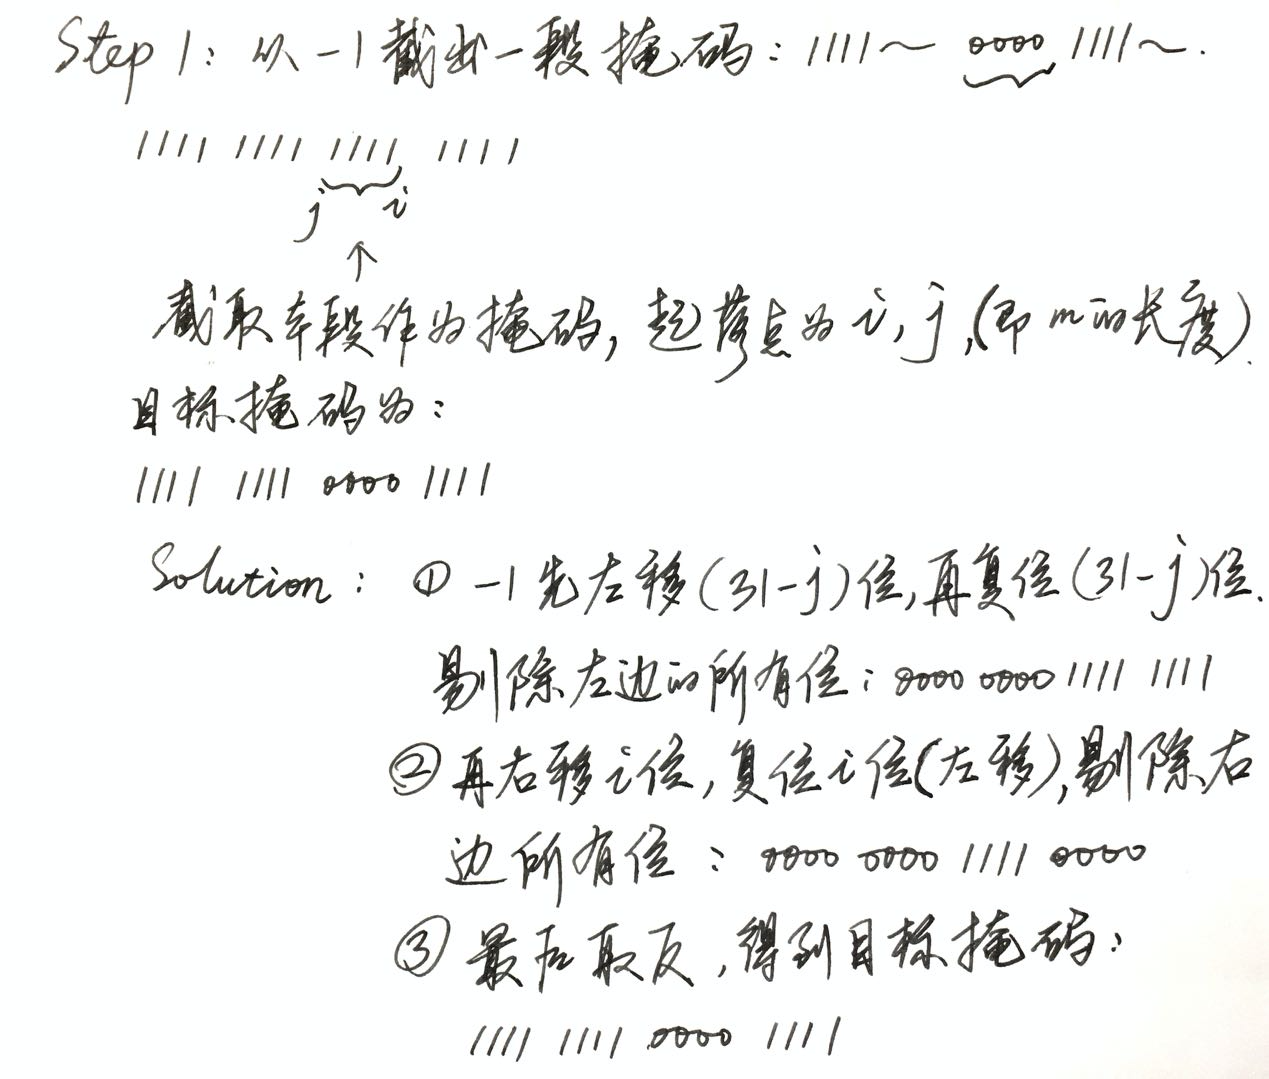 Step 1: 从 -1 截出一段掩码: 1111~ 0000 1111~.
1111 1111 1111 1111
j i
↑
截取本段作为掩码, 起落点为 i, j, (即 m 的长度).
目标掩码为:
1111 1111 0000 1111
Solution: ① -1 先左移(31-j)位, 再复位(31-j)位.
剔除左边的所有位: 0000 0000 1111 1111
② 再右移 i 位, 复位 i 位(左移), 剔除右
边所有位: 0000 0000 1111 0000
③ 最后取反, 得到目标掩码:
1111 1111 0000 1111